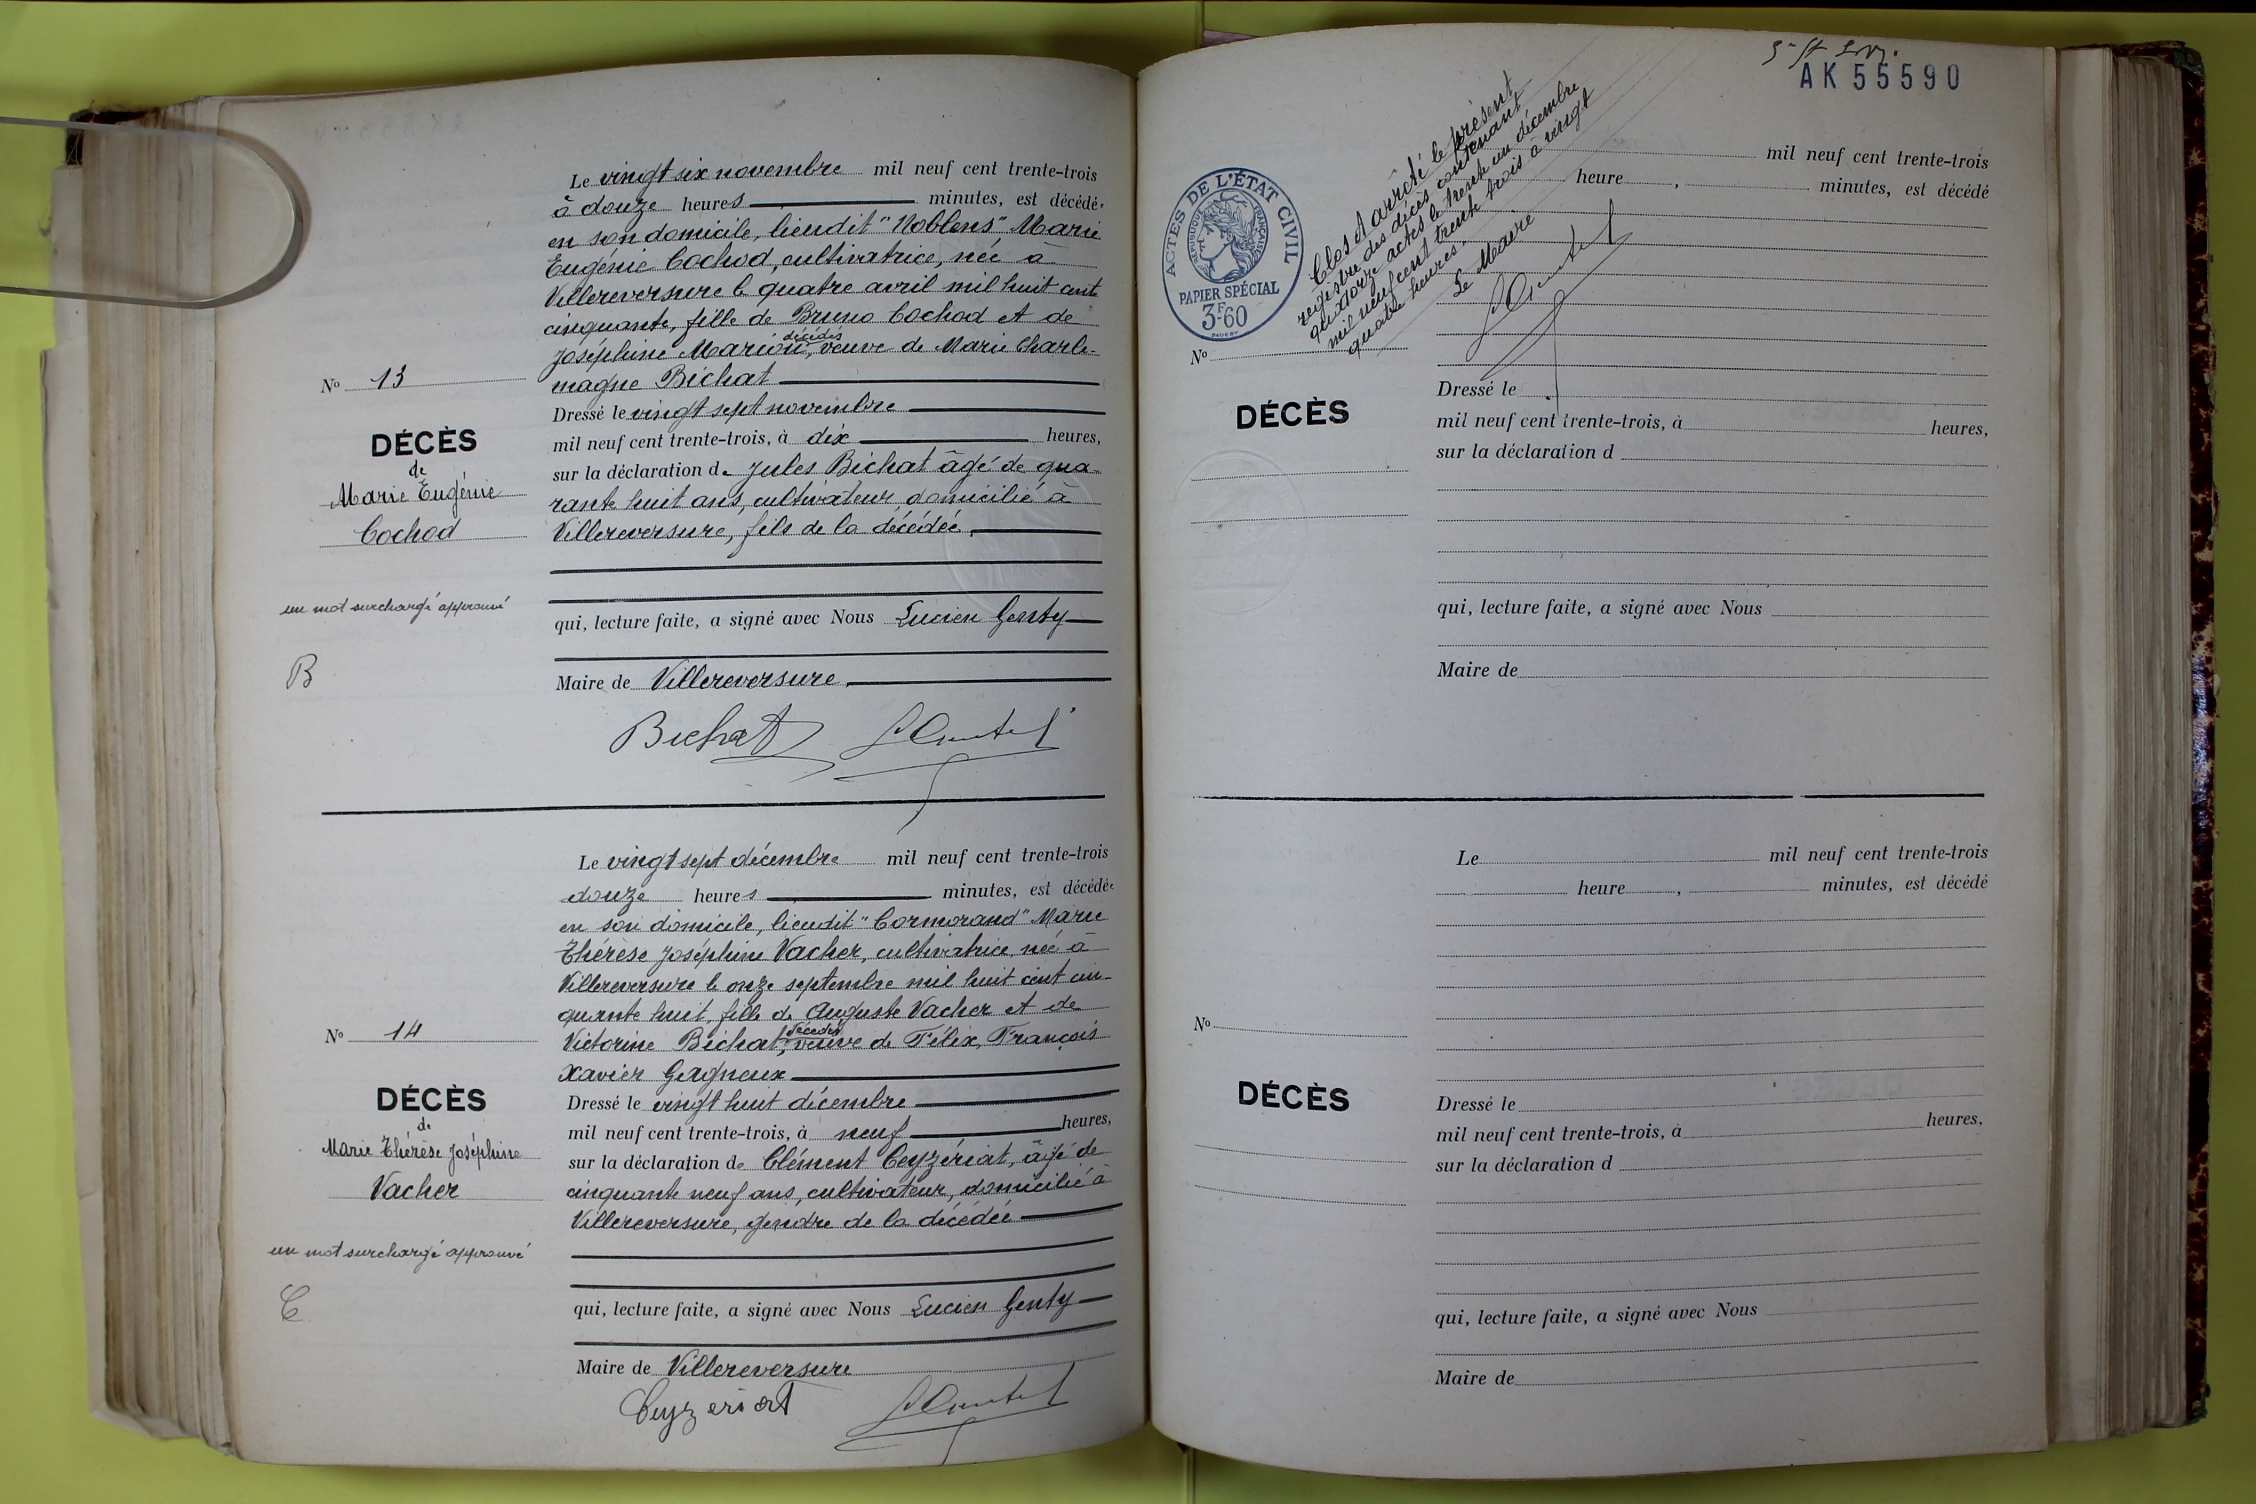 Le vingt six novembre mil neuf cent trente-trois
à douze heures minutes, est décédée
en son domicile, lieudit "Noblens" Marie
Eugénie Cochod, cultivatrice, née à
Villereversure le quatre avril mil huit cent
cinquante, fille de Bruno Cochod et de
décédés
Joséphine Mariou, veuve de Marie Charle-
magne Bichat
No 13
Dressé le vingt sept novembre
mil neuf cent trente-trois, à dix heures,
DÉCÈS
de
Marie Eugénie
Cochod
sur la déclaration de Jules Bichat âgé de qua-
rante huit ans, cultivateur, domicilié à
Villereversure, fils de la décédée,
un mot surchargé approuvé
B
qui, lecture faite, a signé avec Nous Lucien Genty
Maire de Villereversure
Bichat
Le vingt sept décembre mil neuf cent trente-trois
douze heures minutes, est décédée
en son domicile, lieudit "Cormorand" Marie
Thérèse Joséphine Vacher, cultivatrice, née à
Villereversure le onze septembre mil huit cent cin-
quante huit, fille de Auguste Vacher et de
décédés
Victorine Bichat, veuve de Félix, François
Xavier Gagneux
No 14
Dressé le vingt huit décembre
mil neuf cent trente-trois, à neuf heures,
DÉCÈS
de
Marie Thérèse Joséphine
Vacher
sur la déclaration de Clément Ceyzériat, âgé de
cinquante neuf ans, cultivateur, domicilié à
Villereversure, gendre de la décédée
un mot surchargé approuvé
C
qui, lecture faite, a signé avec Nous Lucien Genty
Maire de Villereversure
Ceyzeriat
AK 55590
ACTES DE L'ÉTAT CIVIL
RÉPUBLIQUE FRANÇAISE
PAPIER SPÉCIAL
3F60
Clos et arrêté le présent
registre des décès contenant
quatorze actes le trente un décembre
mil neuf cent trente trois à vingt
quatre heures.
Le Maire
mil neuf cent trente-trois
heure , minutes, est décédé
No
DÉCÈS
Dressé le
mil neuf cent trente-trois, à heures,
sur la déclaration d
qui, lecture faite, a signé avec Nous
Maire de
Le mil neuf cent trente-trois
heure , minutes, est décédé
No
DÉCÈS
Dressé le
mil neuf cent trente-trois, à heures,
sur la déclaration d
qui, lecture faite, a signé avec Nous
Maire de